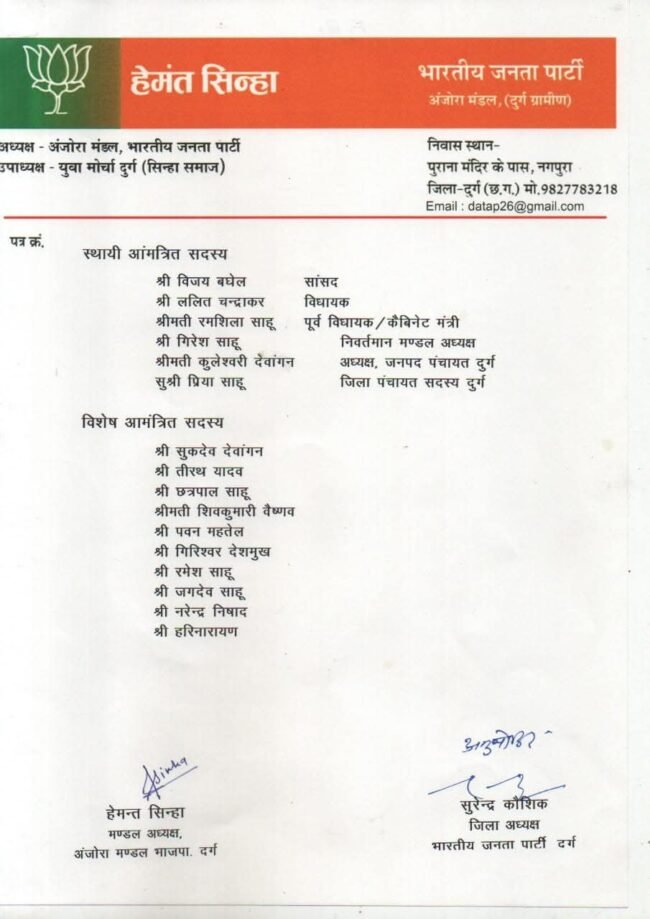 हेमंत सिन्हा
भारतीय जनता पार्टी
अंजोरा मंडल, (दुर्ग ग्रामीण)
अध्यक्ष - अंजोरा मंडल, भारतीय जनता पार्टी
उपाध्यक्ष - युवा मोर्चा दुर्ग (सिन्हा समाज)
निवास स्थान-
पुराना मंदिर के पास, नगपुरा
जिला-दुर्ग (छ.ग.) मो.9827783218
Email : datap26@gmail.com
पत्र क्रं.
स्थायी आंमत्रित सदस्य
श्री विजय बघेल सांसद
श्री ललित चन्द्राकर विधायक
श्रीमती रमशिला साहू पूर्व विधायक/कैबिनेट मंत्री
श्री गिरेश साहू निवर्तमान मण्डल अध्यक्ष
श्रीमती कुलेश्वरी देवांगन अध्यक्ष, जनपद पंचायत दुर्ग
सुश्री प्रिया साहू जिला पंचायत सदस्य दुर्ग
विशेष आमंत्रित सदस्य
श्री सुकदेव देवांगन
श्री तीरथ यादव
श्री छत्रपाल साहू
श्रीमती शिवकुमारी वैष्णव
श्री पवन महतेल
श्री गिरिश्वर देशमुख
श्री रमेश साहू
श्री जगदेव साहू
श्री नरेन्द्र निषाद
श्री हरिनारायण
हेमन्त सिन्हा
मण्डल अध्यक्ष,
अंजोरा मण्डल भाजपा. दुर्ग
सुरेन्द्र कौशिक
जिला अध्यक्ष
भारतीय जनता पार्टी दुर्ग